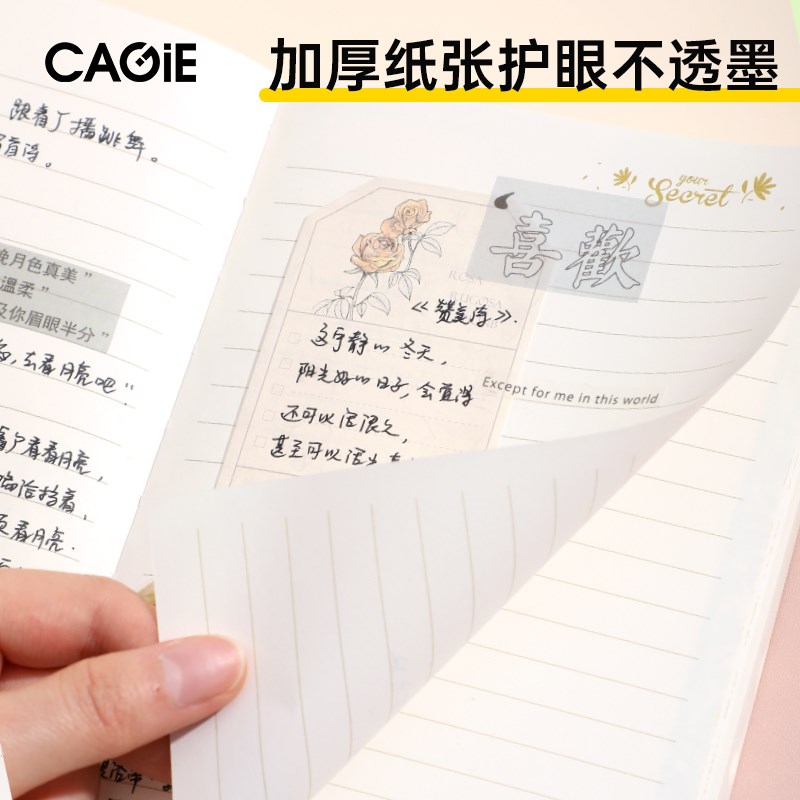 CAGiE
加厚纸张护眼不透墨
跟着广播跳舞。
晚月色真美”
温柔”
及你眉眼半分”
去看月亮吧"
看看月亮，
看月亮.
your
Secret
喜歡
ROSA
RUGOSA
《赞美诗》.
这宁静的冬天，
阳光好的日子，会觉得
还可以活很久，
甚至可以活出
Except for me in this world